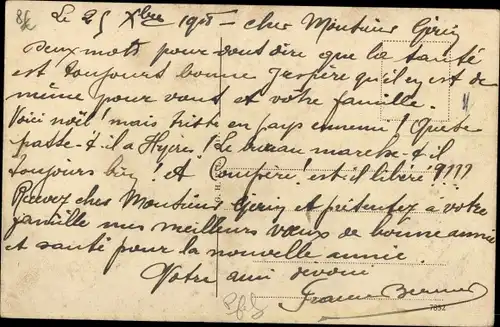 Le 25 Xbre 1918 - cher Monsieur Gérin
deux mots pour vous dire que la santé
est toujours bonne J'espère qu'il en est de
même pour vous et votre famille.
Voici noël! mais triste en pays ennemi! Que se
passe-t-il a Hyères! Le bureau marche-t-il
toujours bien! et Compère! est-il libéré????
Recevez cher Monsieur Gérin et présentez à votre
famille mes meilleurs voeux de bonne année
et santé pour la nouvelle année.
Votre ami dévoué
7892